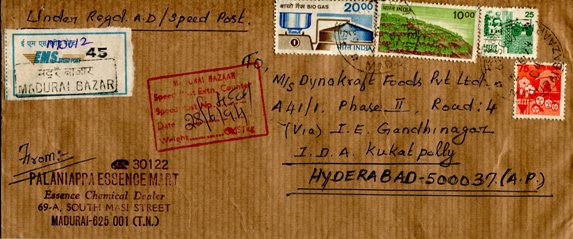 Under Regd. A.D/Speed Post.
45
EMS SPEED POST
मदुरै बाजार
MADURAI BAZAR
MADURAI BAZAAR
Speed Post Extn. Counter
Speed Post No.
Date 28/6/94
Weight
बायो गैस BIO GAS
2000
भारत INDIA
1000
भारत INDIA
25
To,
M/s Dynakraft Foods Pvt Ltd.
A41/1. Phase II, Road: 4
(Via) I.E. Gandhinagar
I.D.A. Kukatpally
HYDERABAD-500037.(A.P.)
From:-
30122
PALANIAPPA ESSENCE MART
Essence Chemical Dealer
69-A, SOUTH MASI STREET
MADURAI-625 001 (T.N.)